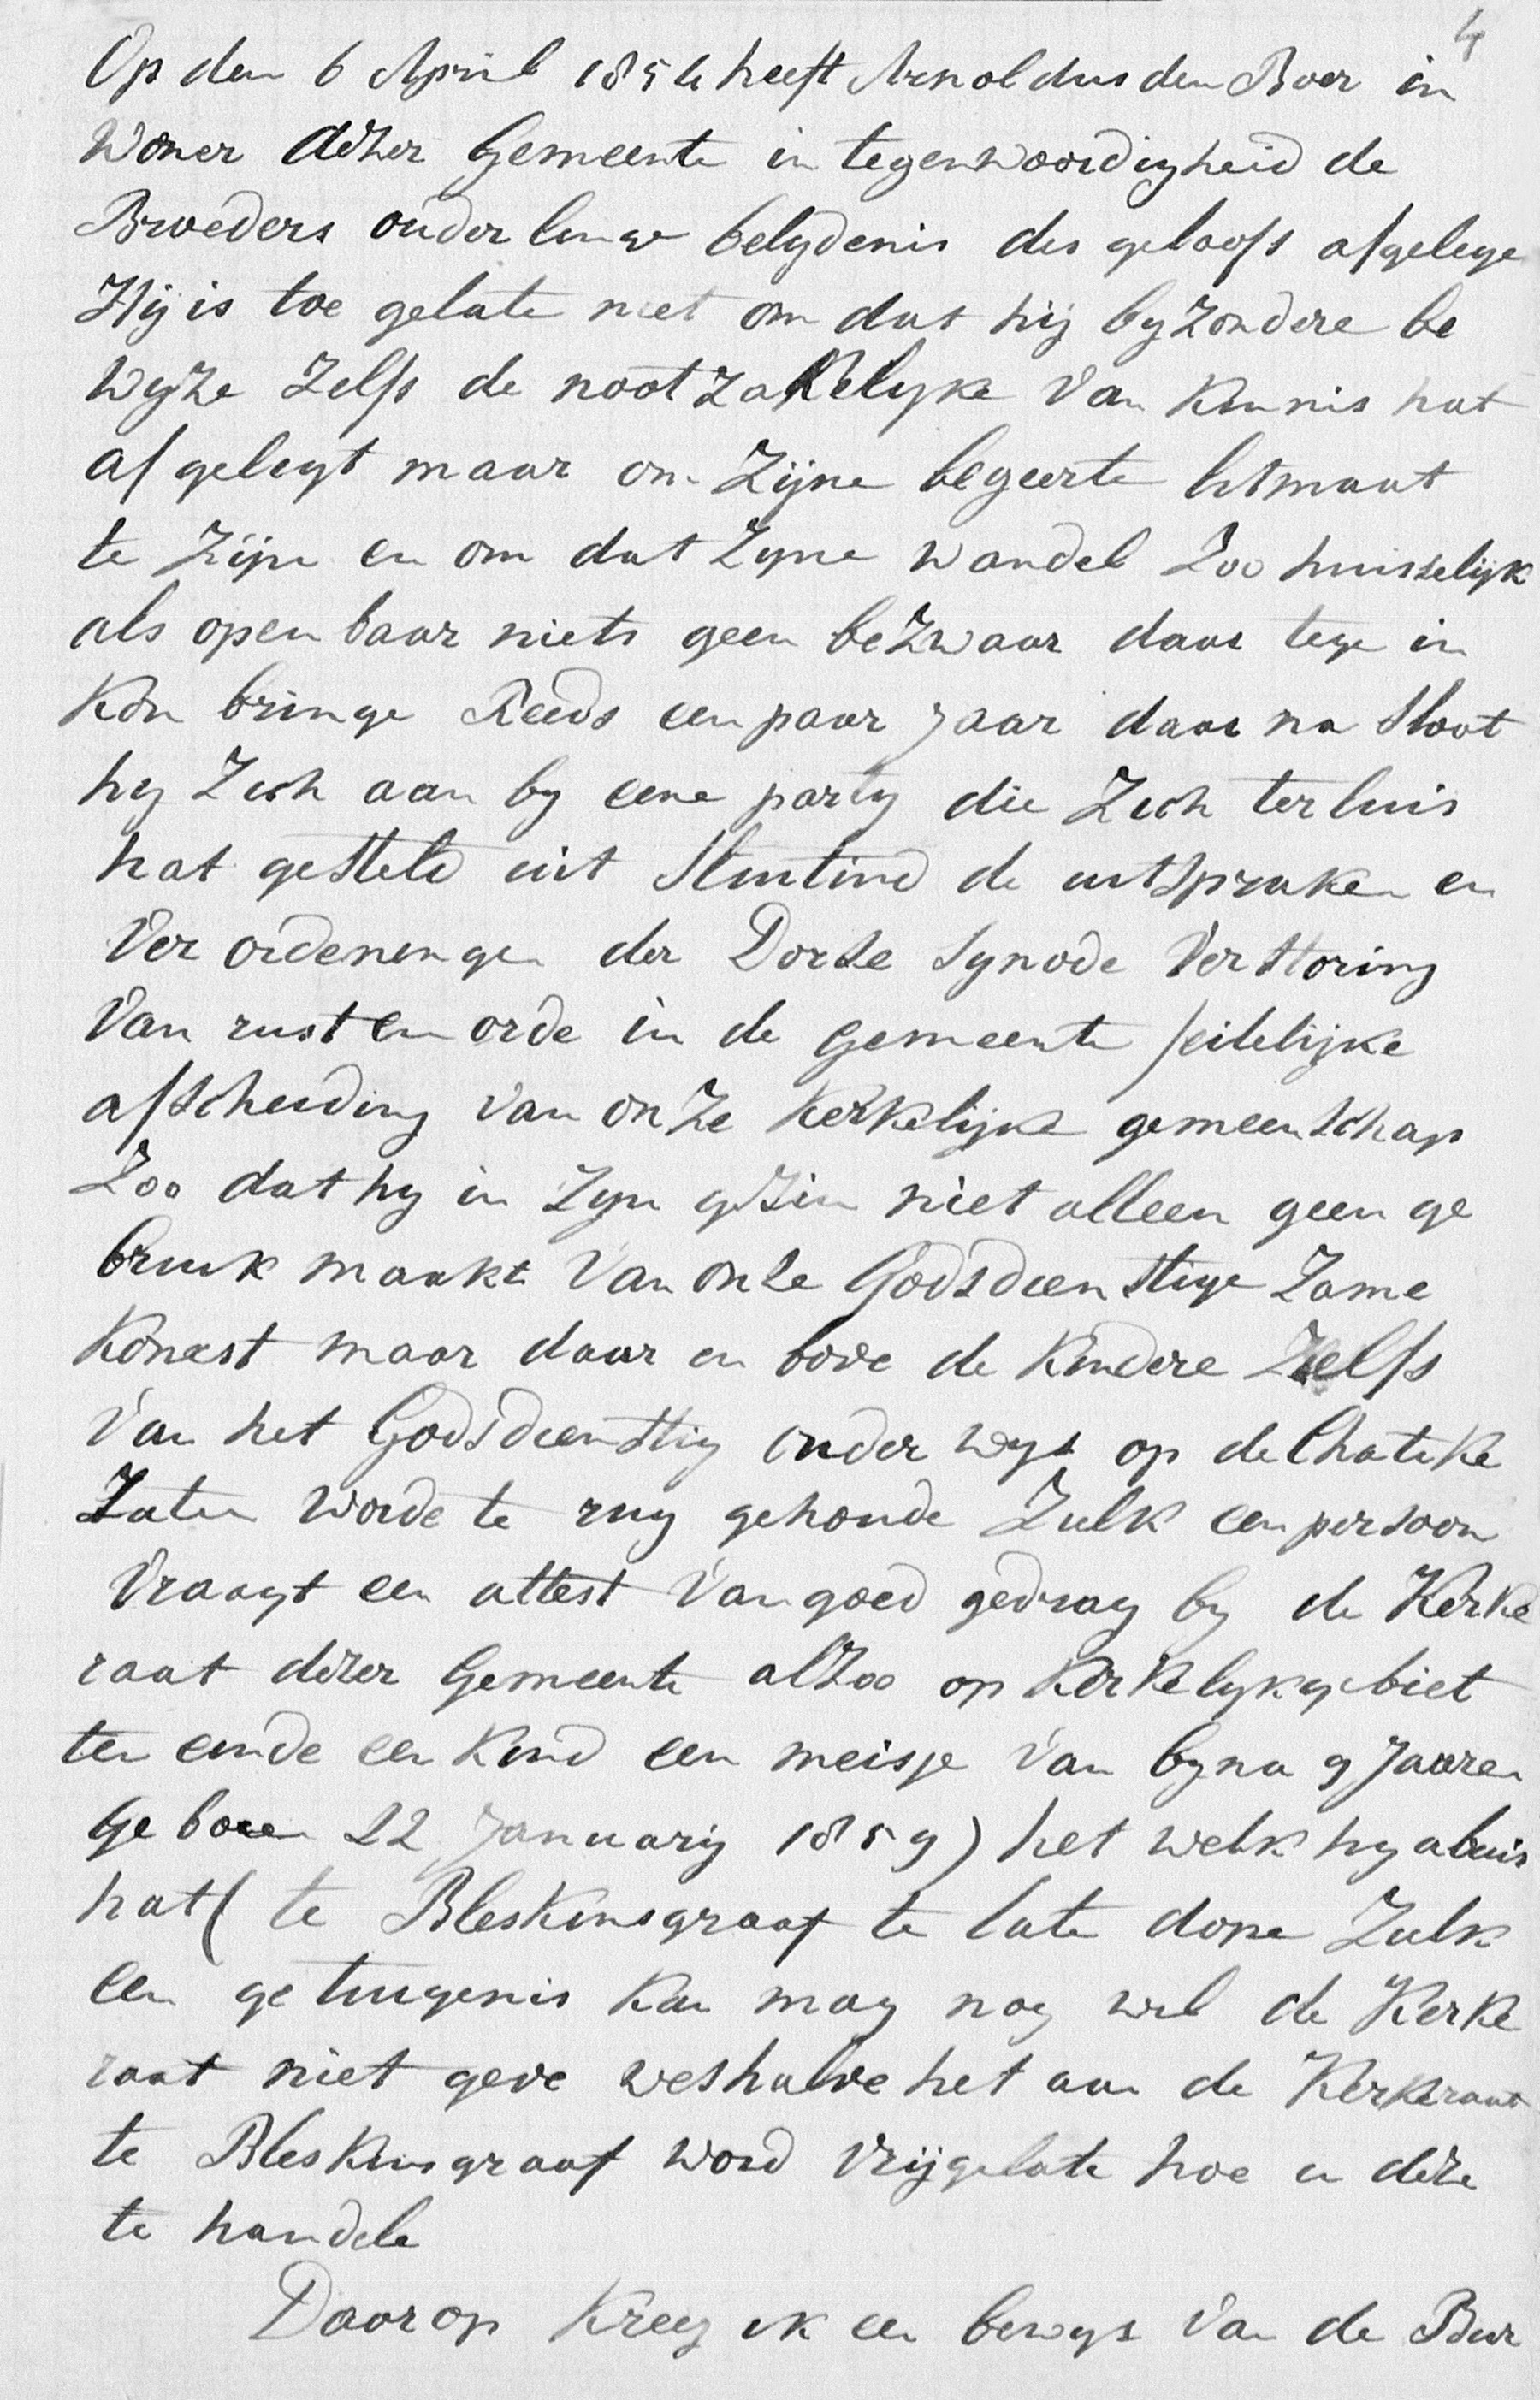 4
Op den 6 April 1854 heeft Arnoldus den Boer in
woner dezer Gemeente in tegenwoordigheid de
Broeders ouderlinge belydenis des geloofs afgelege
Hij is toe gelate niet om dat hij byzondere be
wyze zelfs de nootzakelyke van kennis hat
afgelegt maar om zijne begeerte litmaat
te zijn en om dat zyne wandel zoo huisselijk
als open baar niets geen bezwaar daar tege in
kon bringe Reeds een paar jaar daar na sloot
hy zich aan by eene party die zich ter luis
hat gesteld uit sluitind de uitspraken en
Ver ordeningen der Dorse Synode Verstoring
Van rust en orde in de gemeente feitelijke
afscheiding van onze kerkelijke gemeenschap
Zoo dat hy in zyn gezin niet alleen geen ge
bruik maakt van onse Godsdienstige zame
komst maar daar en bove de kindere zelfs
van het Godsdienstig onder wys op de Chateke
zaten worde te rug gehoude Zulk een persoon
vraagt een attest van goed gedrag by de Kerke
raat dezer Gemeente alzoo op kerkelyk gebiet
ten einde een kind een meisje van byna 9 jaaren
Geboren 22 Januarij 1859) het welk hy abuis
hat ( te Bleskinsgraaf te late dope Zulk
een getuigenis kan mag nog wil de Kerke
raat niet geve weshalve het aan de Kerkeraat
te Bleskinsgraaf word vrijgelate hoe in deze
te handele
Daar op kreeg ik een bewys van de Bur